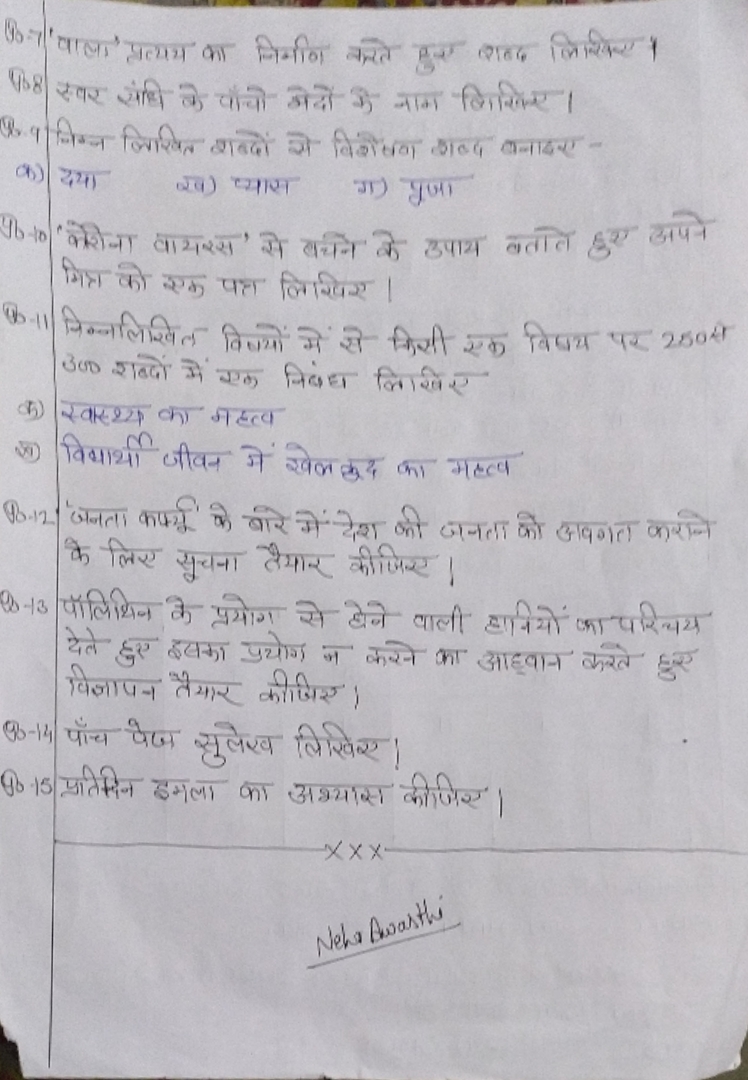 प्र०-7 'वाला' प्रत्यय का निर्माण करते हुए शब्द लिखिए।
प्र०8 स्वर संधि के पाँचो भेदों के नाम लिखिए।
प्र०-9 निम्न लिखित शब्दों से विशेषण शब्द बनाइए -
क) दया ख) प्यास ग) पूजा
प्र०-10 'कोरोना वायरस' से बचने के उपाय बताते हुए अपने
मित्र को एक पत्र लिखिए।
प्र०-11 निम्नलिखित विषयों में से किसी एक विषय पर 250से
300 शब्दों में एक निबंध लिखिए
क) स्वास्थ्य का महत्व
ख) विद्यार्थी जीवन में खेलकूद का महत्व
प्र०-12 'जनता कर्फ्यू' के बारे में देश की जनता को अवगत कराने
के लिए सूचना तैयार कीजिए।
प्र०-13 पॉलिथिन के प्रयोग से होने वाली हानियों का परिचय
देते हुए इसका प्रयोग न करने का आह्वान करते हुए
विज्ञापन तैयार कीजिए।
प्र०-14 पाँच पेज सुलेख लिखिए।
प्र०-15 प्रतिदिन इमला का अभ्यास कीजिए।
xxx
Neha Awasthi